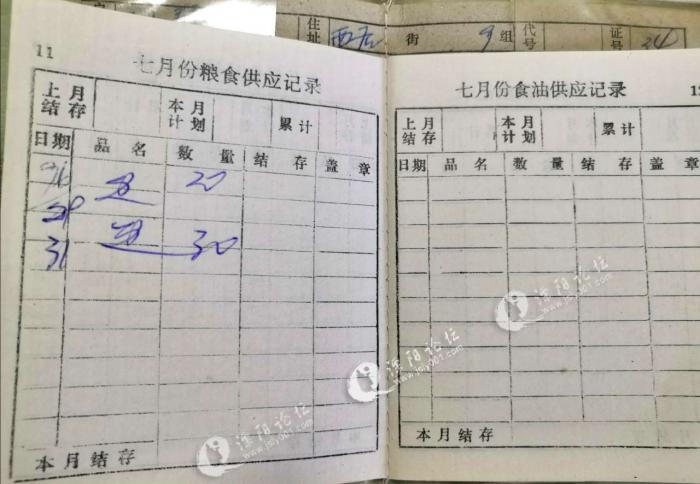 住址 街 组 代号 证号 24
11
七月份粮食供应记录
上月结存 本月计划 累计
日期 品名 数量 结存 盖章
20
31 30
本月结存
七月份食油供应记录
12
上月结存 本月计划 累计
日期 品名 数量 结存 盖章
本月结存
溧阳论坛
www.jsly001.com
溧阳论坛
www.jsly001.com
溧阳论坛
www.jsly001.com